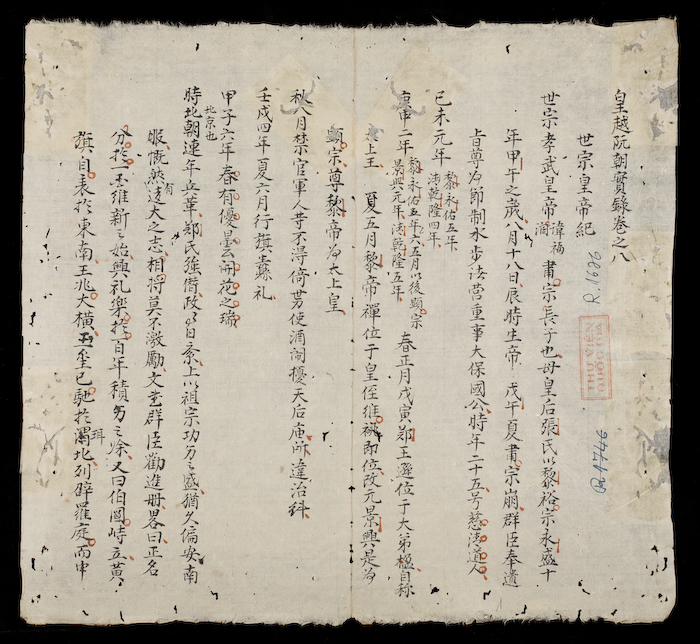 皇越阮朝實錄卷之八
世宗皇帝紀
世宗孝武皇帝 諱福濶 肅宗長子也母皇后張氏以黎裕宗永盛十
年甲午之歲八月十八日辰時生帝 戊午夏肅宗崩群臣奉遺
旨尊為節制水步法營重事大保國公時年二十五号慈濟道人
己未元年 黎永佑五年 清乾隆四年
庚申二年 黎永佑五年六月以後顯宗 景興元年清乾隆五年 春正月戊寅鄭王遜位于大弟楹自称
上王 夏五月黎帝禪位于皇侄維祧即位改元景興是为
顯宗尊黎帝为太上皇
秋八月禁官軍人等不得倚势使酒閙擾天后庙所違治科
壬戌四年夏六月行旗纛礼
甲子六年春有優曇云開花之瑞
時北朝連年兵革鄭氏強僣政多日紊上以祖宗功夯之盛猶久偏安南
北京也
服慨然有遠大之志相將莫不激勵文臣群臣勸進册畧曰正名
分於一丕維新之始興礼樂於百年積夯之余又曰伯圖峙立黃
旗自表於東南王兆大橫玉玺已馳於渭北列辟羅庭而申
珥
R.1686
THƯ VIỆN
QUỐC GIA
R.1746